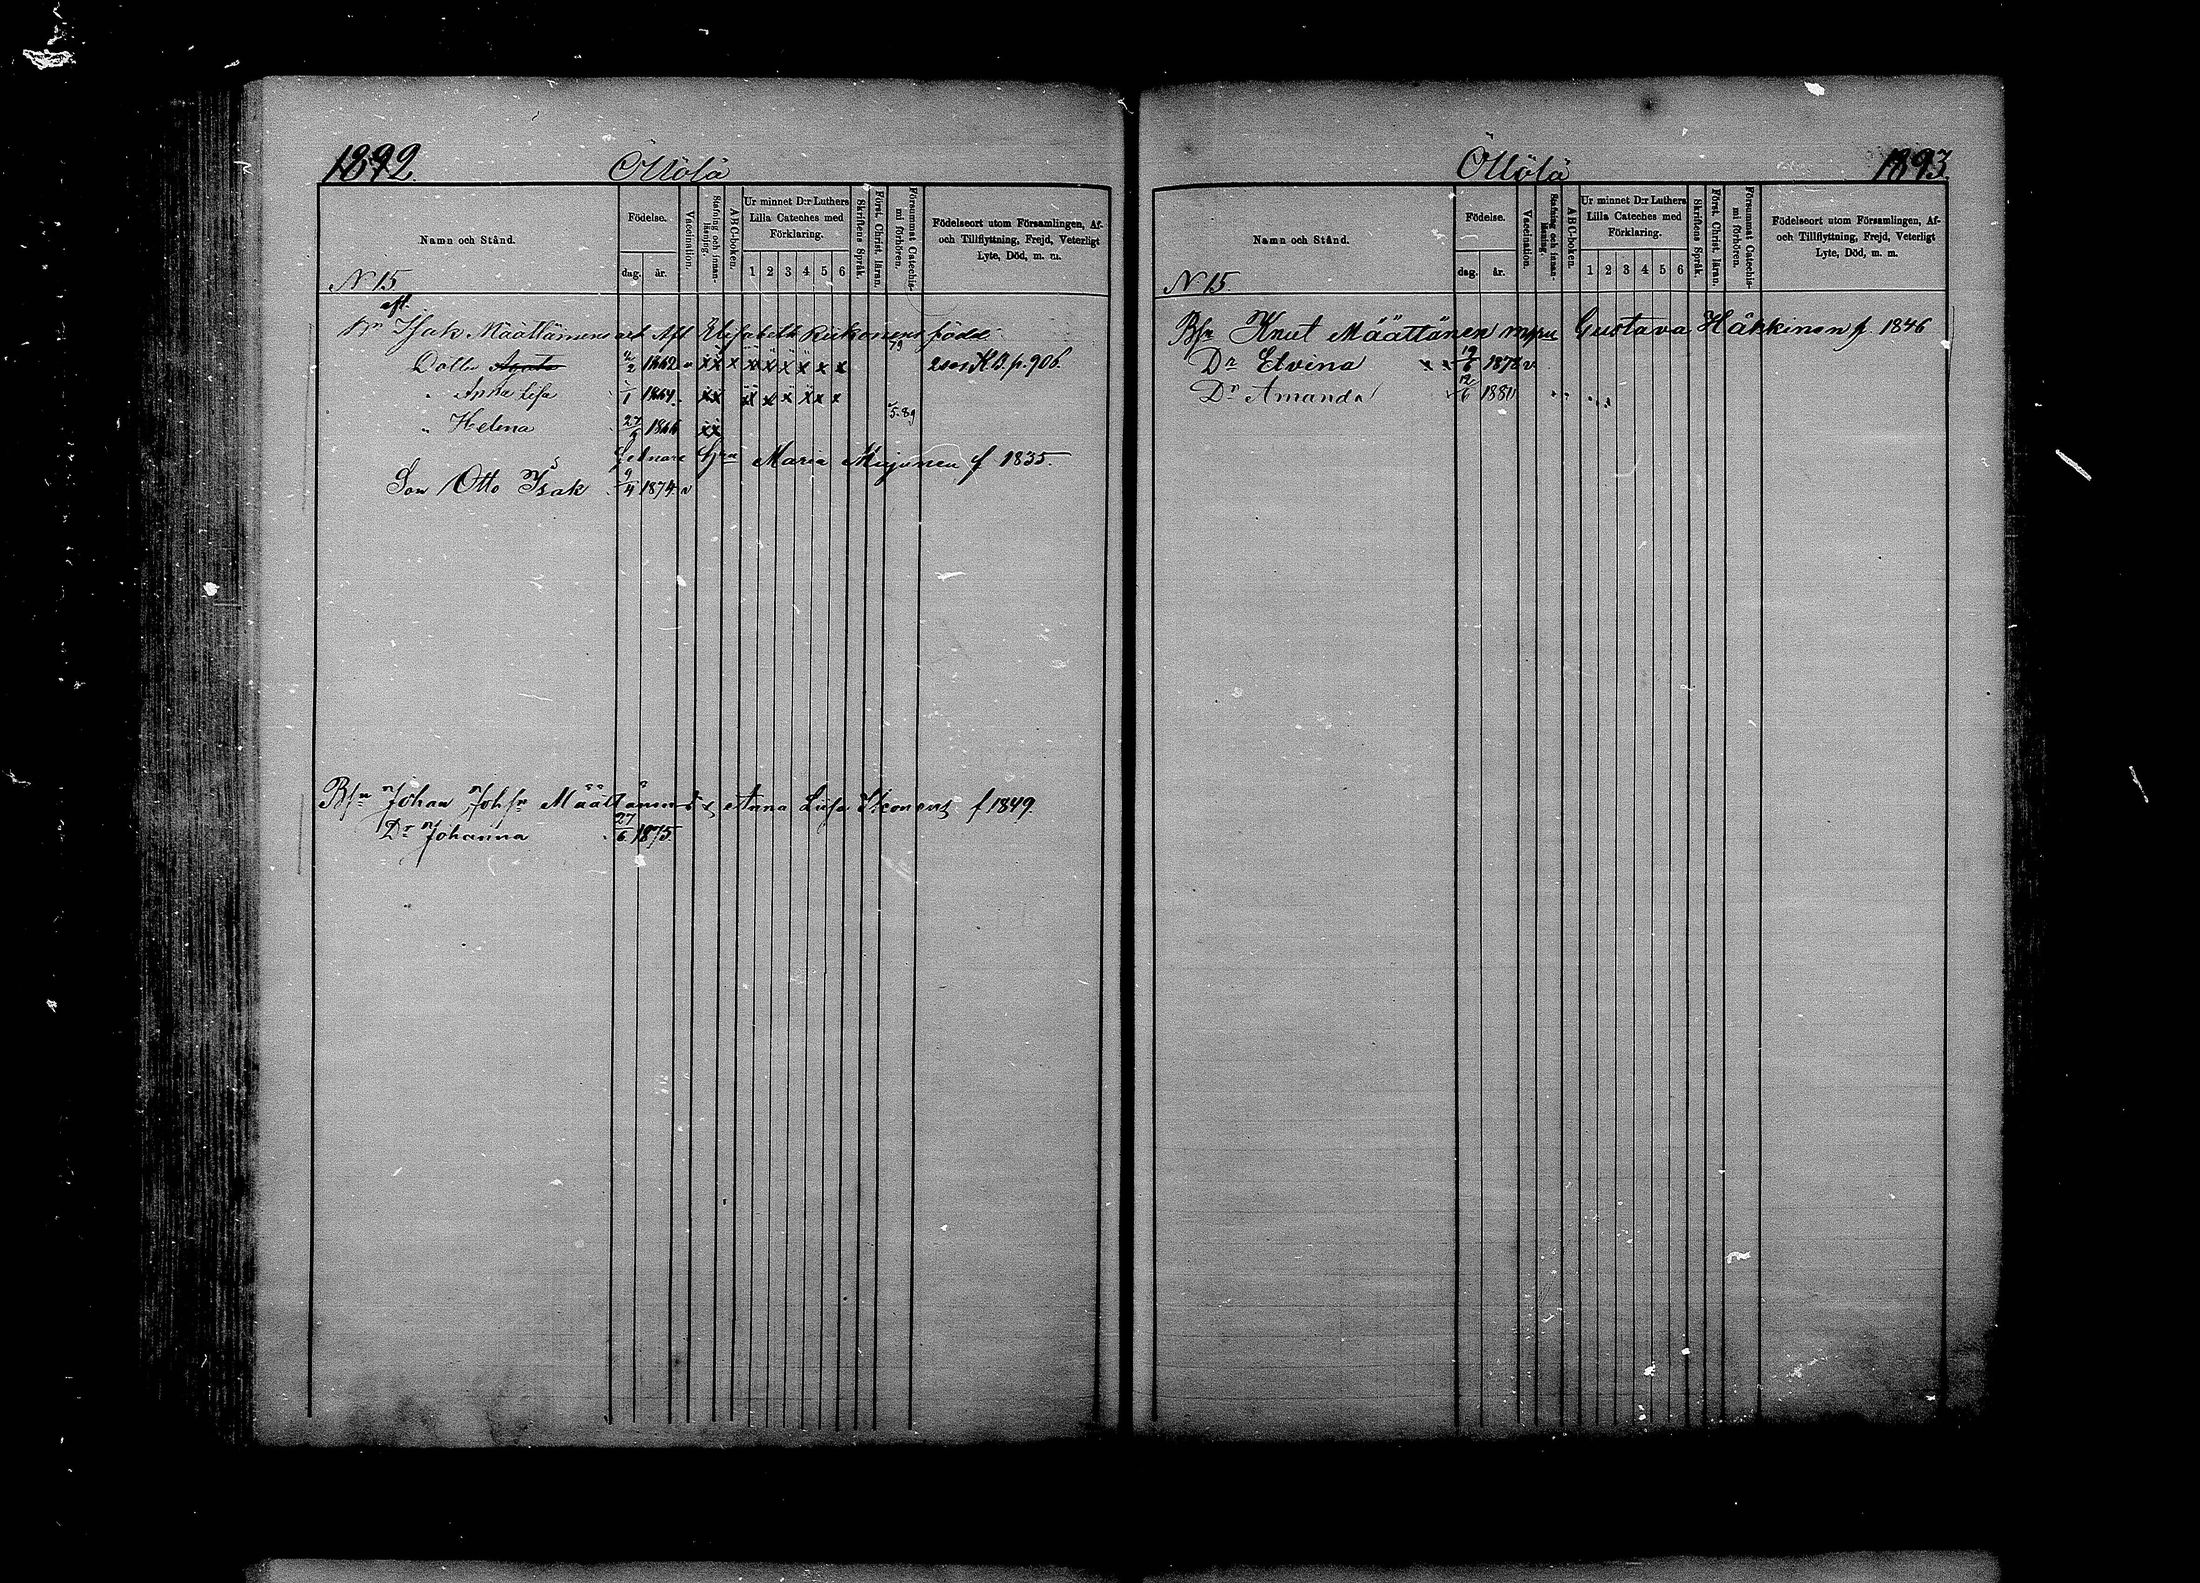 1892. Ollölä
Namn och Stånd.
Födelse.
dag. år.
Vaccination.
Stafning och innan-
läsning.
ABC-boken.
Ur minnet D:r Luthers
Lilla Cateches med
Förklaring.
1 2 3 4 5 6
Skriftens Språk.
Först. Christ. läran.
Försummat Catechis-
mi förhören.
Födelseort utom Församlingen, Af-
och Tillflyttning, Frejd, Veterligt
Lyte, Död, m. m.
N 15
aft.
Isak Määttänens Aft Elisabeth född
Dottr Agata 1862 K.B. p. 906.
" Anna Lisa 1 1864
5.89
" Helena 27 1866
Hru Maria f 1835.
Son Otto Isak 9/4 1874 v
Bsn Johan Johsn Määttänens Anna Lisa f 1849.
Dr Johanna 27/6 1875
Ollölä 1893.
Namn och Stånd.
Födelse.
dag. år.
Vaccination.
Stafning och innan-
läsning.
ABC-boken.
Ur minnet D:r Luthers
Lilla Cateches med
Förklaring.
1 2 3 4 5 6
Skriftens Språk.
Först. Christ. läran.
Försummat Catechis-
mi förhören.
Födelseort utom Församlingen, Af-
och Tillflyttning, Frejd, Veterligt
Lyte, Död, m. m.
N 15.
Bsn Knut Määttänen Gustava Häkkinen f. 1846
Dr Elvina x x 19/6 1878 v
Dr Amanda 12/6 1880